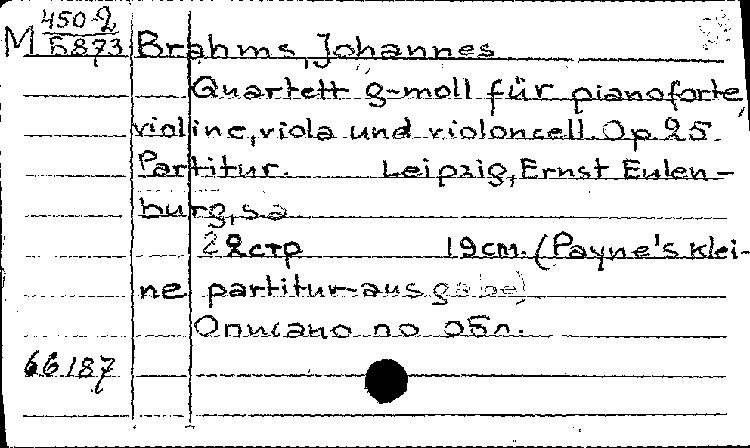 M 450-2
5873
Brahms, Johannes
Quartett g-moll für pianoforte,
violine, viola und violoncell. Op. 25.
Partitur. Leipzig, Ernst Eulen-
burg, sa
22 стр 19 cm. (Payne's klei-
ne partitur-ausgabe)
Описано по обл.
66187